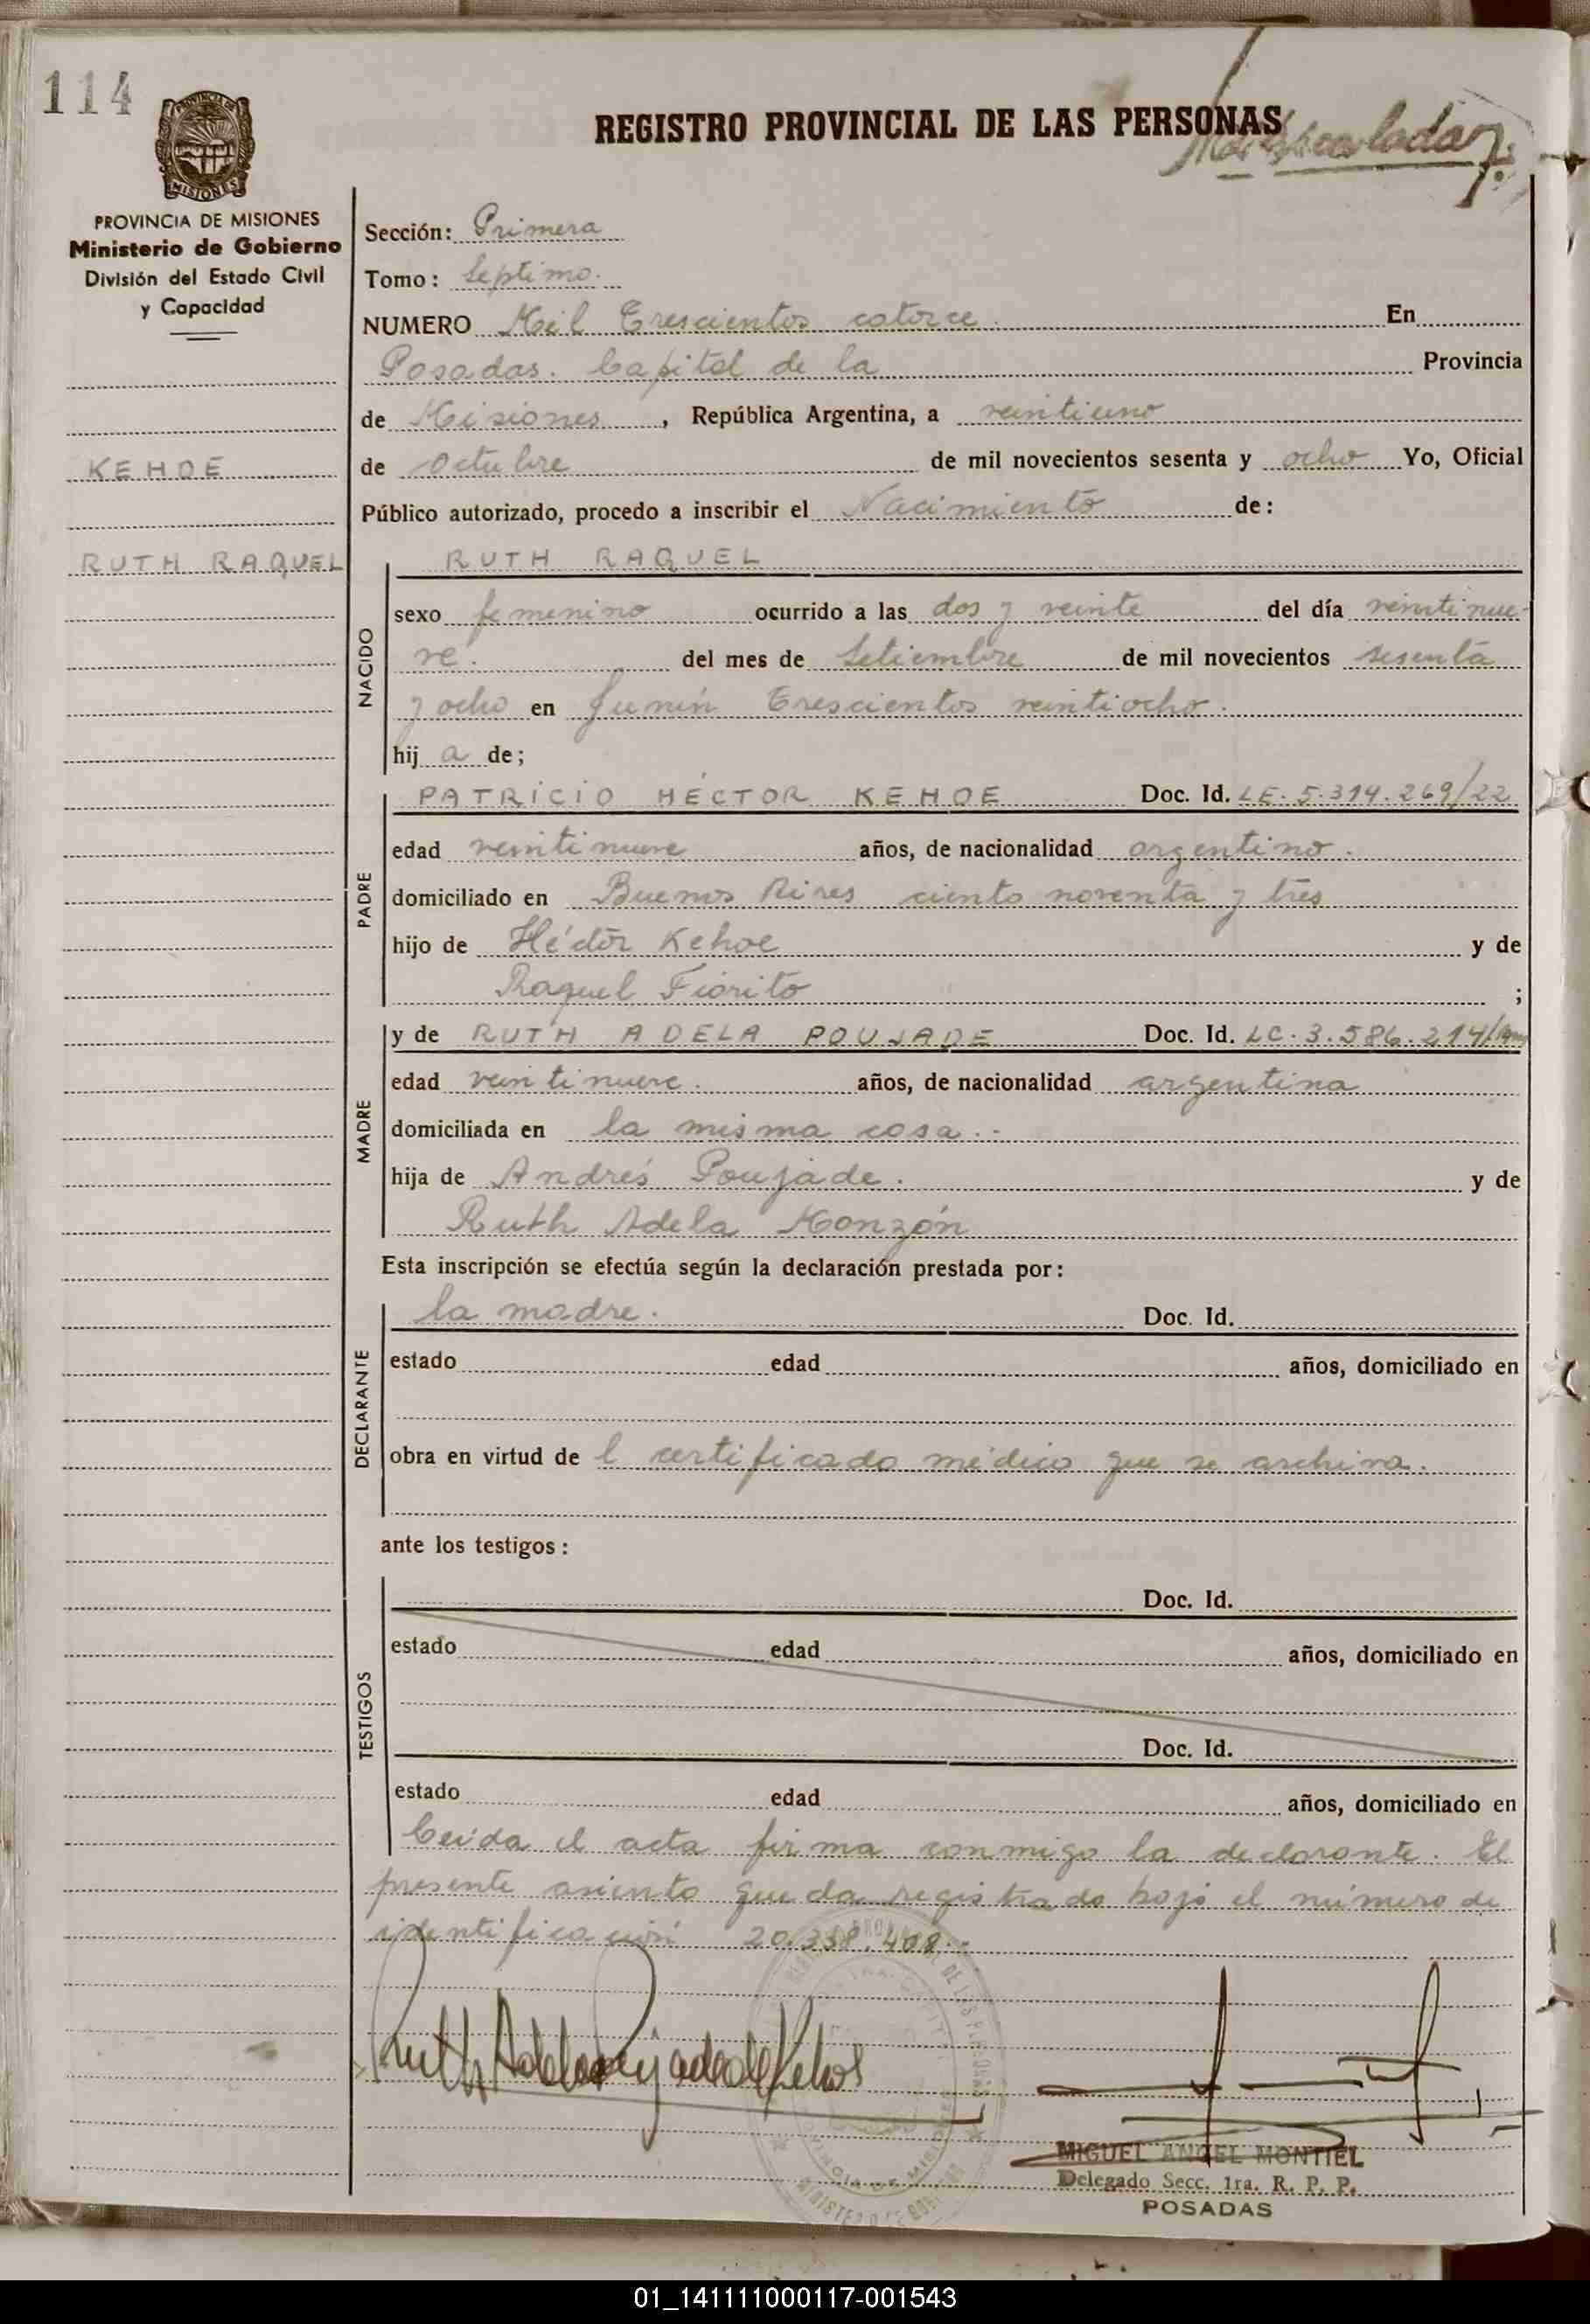 114
REGISTRO PROVINCIAL DE LAS PERSONAS
PROVINCIA DE MISIONES
Ministerio de Gobierno
División del Estado Civil
y Capacidad
KEHOE
RUTH RAQUEL
Sección: Primera
Tomo: Septimo.
NUMERO Mil Trescientos catorce. En
Posadas. Capital de la Provincia
de Misiones, República Argentina, a veintiuno
de Octubre de mil novecientos sesenta y ocho Yo, Oficial
Público autorizado, procedo a inscribir el Nacimiento de:
RUTH RAQUEL
NACIDO
sexo femenino ocurrido a las dos y veinte del día veintinue-
ve. del mes de Setiembre de mil novecientos sesenta
y ocho en Junín Trescientos veintiocho.
hija de;
PADRE
PATRICIO HÉCTOR KEHOE Doc. Id. LE. 5.314.269/22
edad veintinueve años, de nacionalidad argentino.
domiciliado en Buenos Aires ciento noventa y tres
hijo de Héctor Kehoe y de
Raquel Fiorito ;
MADRE
y de RUTH ADELA POUJADE Doc. Id. LC. 3.586.214/
edad veintinueve. años, de nacionalidad argentina
domiciliada en la misma casa.-
hija de Andrés Poujade. y de
Ruth Adela Monzón
Esta inscripción se efectúa según la declaración prestada por:
DECLARANTE
la madre. Doc. Id.
estado edad años, domiciliado en
obra en virtud de l certificado médico que se archiva.
ante los testigos:
TESTIGOS
Doc. Id.
estado edad años, domiciliado en
Doc. Id.
estado edad años, domiciliado en
Leida el acta firma conmigo la declarante. El
presente asiento queda registrado bajo el número de
identificación 20.338.408.-
Ruth Adela Poujade de Kehoe
MIGUEL ANGEL MONTIEL
Delegado Secc. 1ra. R. P. P.
POSADAS
01_141111000117-001543